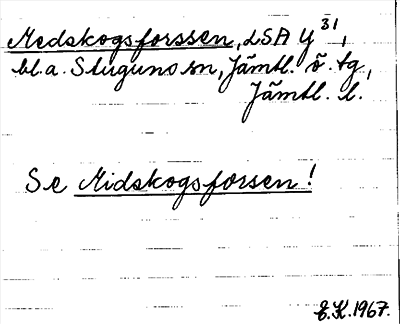 Medskogsforssen, LSA Y 31,
bl.a. Stuguns sn, Jämtl. ö. tg,
Jämtl. l.
Se Midskogsforsen!
E.K. 1967.